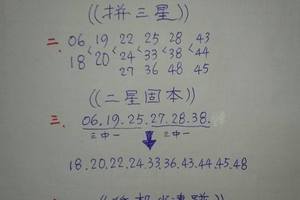 ((拼三星))
二. 06 19 22 25 28 43
18 < 20 < 24 < 33 < 38 < 44
27 36 48 45
((二星固本))
三. 06.19.25.27.28.38.
三中一 三中一
18.20.22.24.33.36.43.44.45.48